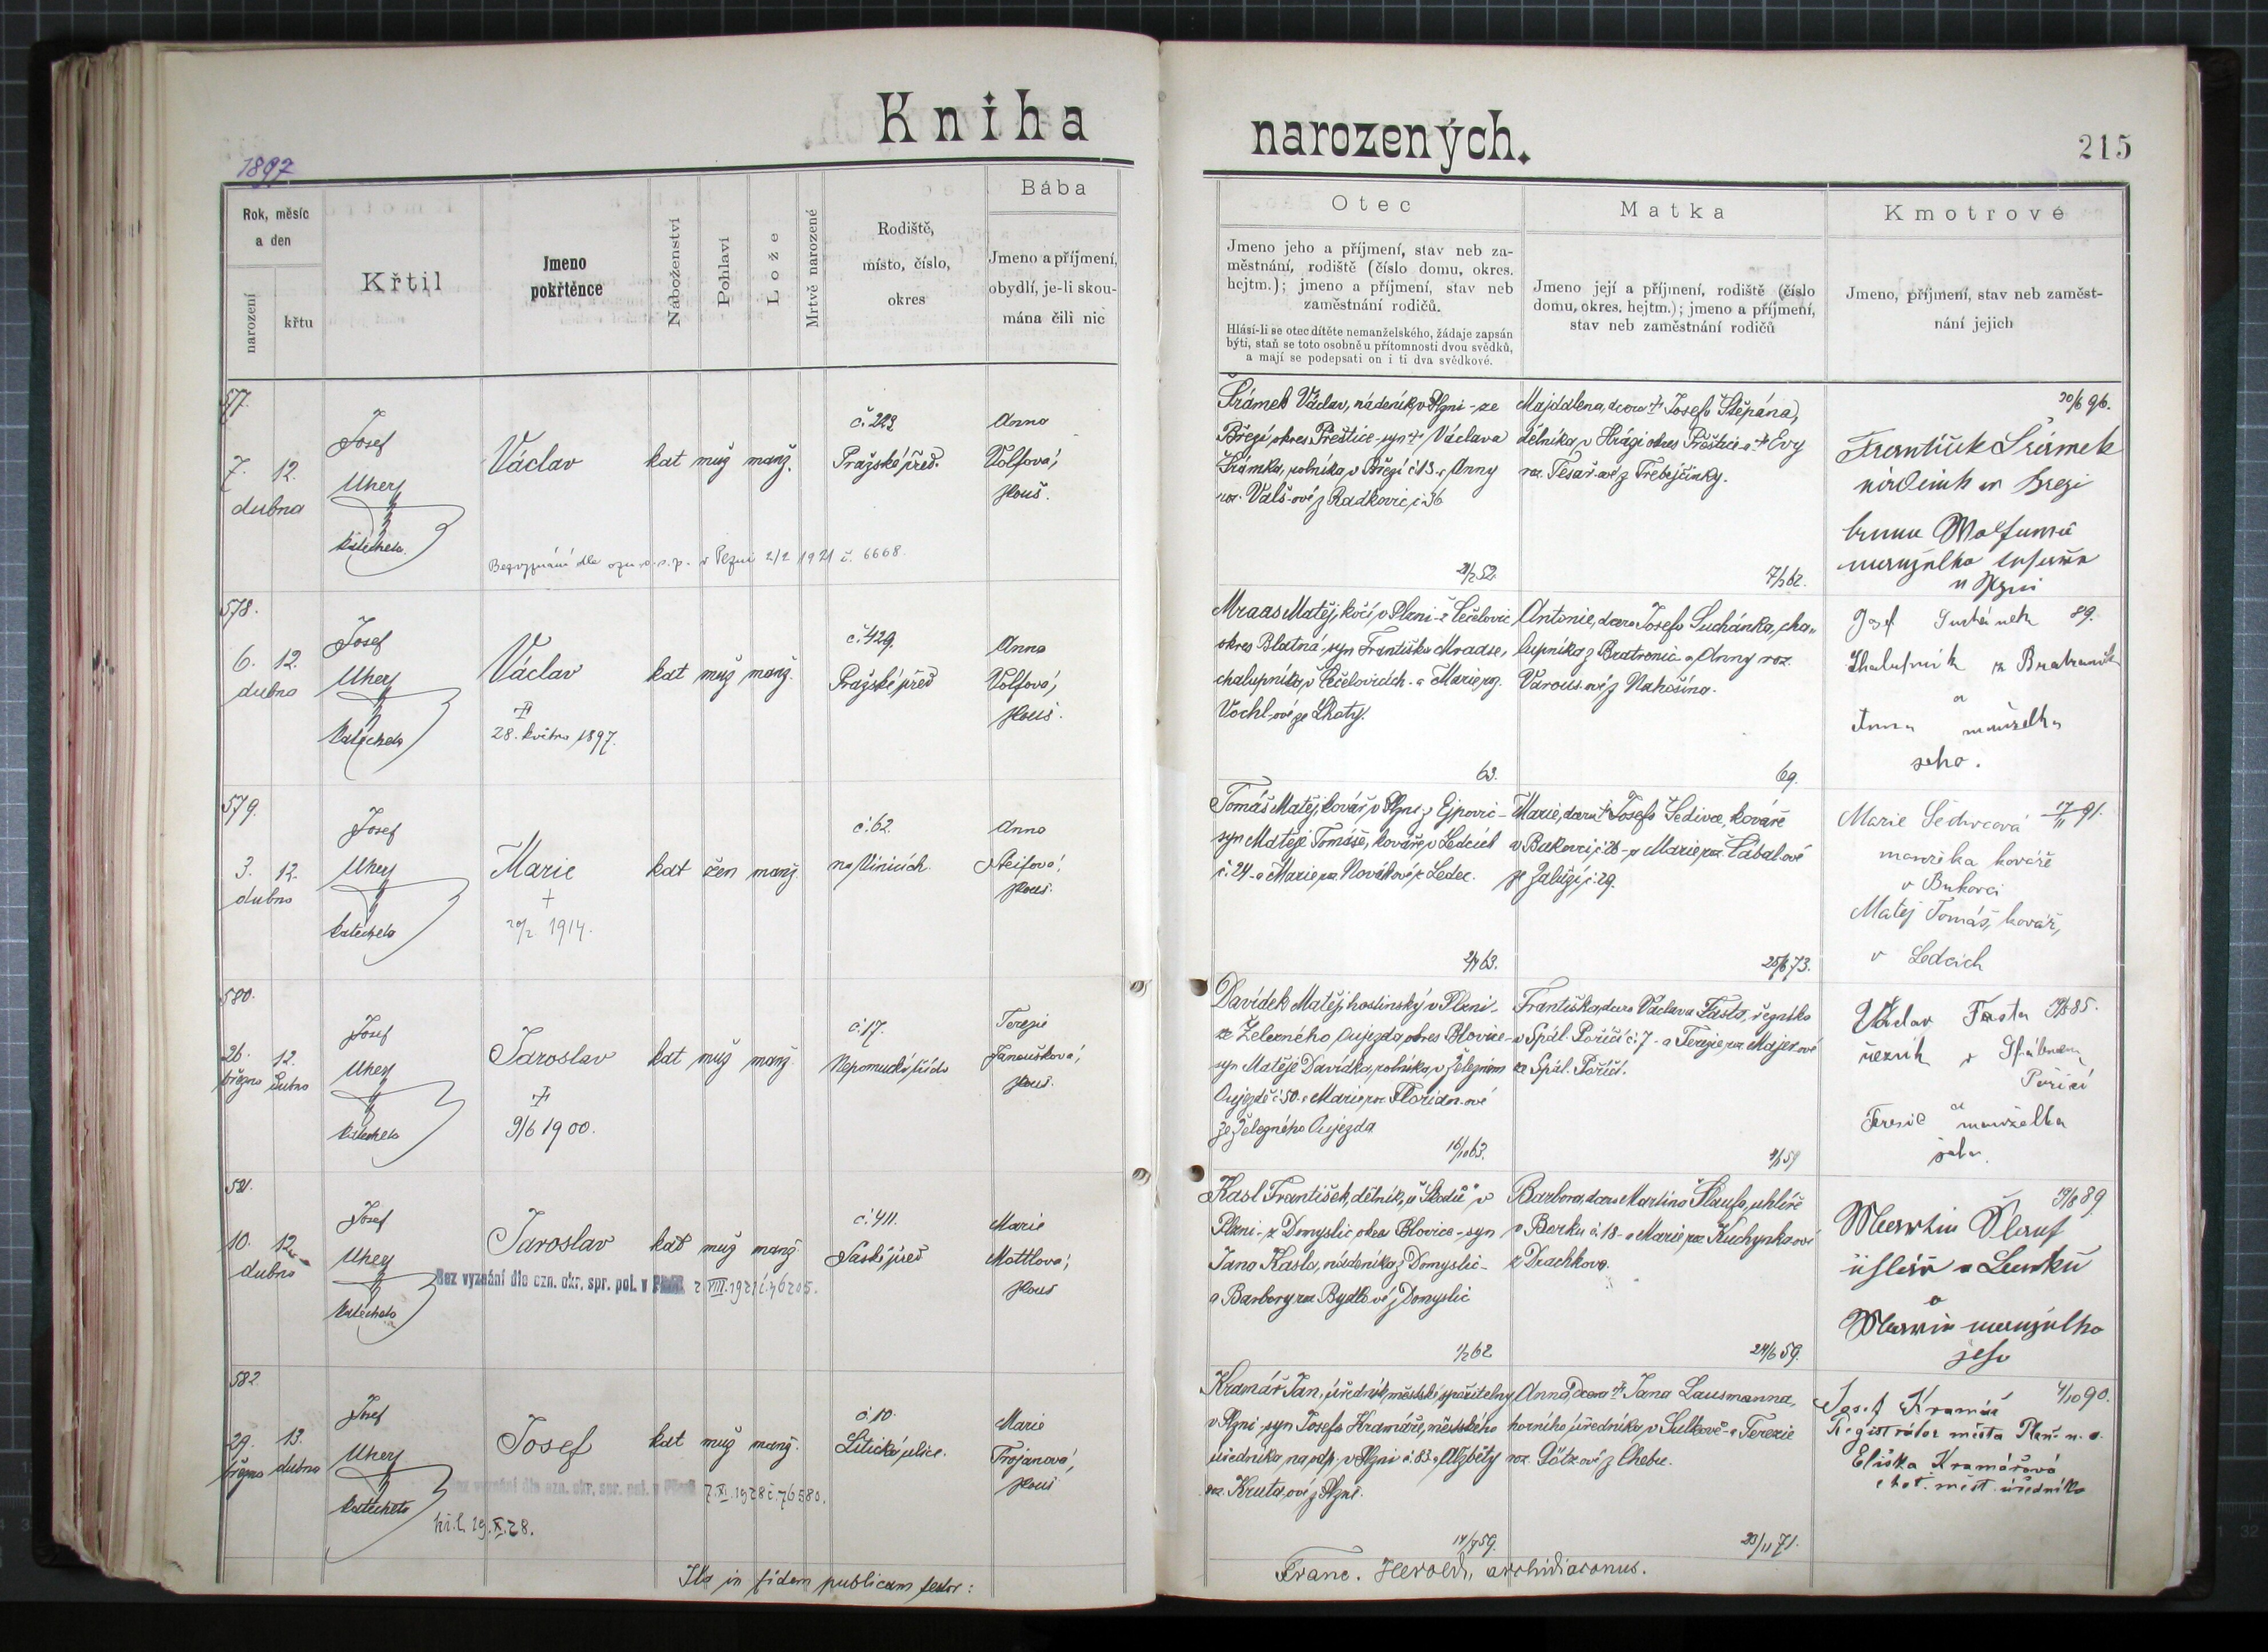 Kniha
narozených.
215
1897
Rok, měsíc
a den
narození
křtu
Křtil
Jmeno
pokřtěnce
Náboženství
Pohlaví
Lože
Mrtvě narozené
Rodiště,
místo, číslo,
okres
Bába
Jmeno a příjmení,
obydlí, je-li skou-
mána čili nic
Otec
Jmeno jeho a příjmení, stav neb za-
městnání, rodiště (číslo domu, okres.
hejtm.); jmeno a příjmení, stav neb
zaměstnání rodičů.
Hlásí-li se otec dítěte nemanželského, žádaje zapsán
býti, staň se toto osobně u přítomnosti dvou svědků,
a mají se podepsati on i ti dva svědkové.
Matka
Jmeno její a příjmení, rodiště (číslo
domu, okres. hejtm.); jmeno a příjmení,
stav neb zaměstnání rodičů
Kmotrové
Jmeno, příjmení, stav neb zaměst-
nání jejich
577.
7. 12.
dubna
Josef
Uherý
katecheta
Václav
kat muž manž.
Pražské před.
Anna
Volfová,
zkouš.
Bezvyznání dle ozn. o. s. p. v Plzni 2/2 1921 č. 6668.
Šrámek Václav, nádeník v Plzni - ze
Březí, okres Přeštice - syn † Václava
Šrámka, rolníka v Březí č 13 a Anny
roz. Valš-ové z Radkovic č 36
Majdalena, dcera † Josefa Štěpána,
dělníka v okres Přeštice a † Evy
roz. Tesař-ové z Trebýcinky.
František Šrámek
nádeník
Wolfová
manželka
v Plzni
578.
6. 12.
dubna
Josef
Uherý
katecheta
Václav
†
28. května 1897.
kat muž manž.
č. 429.
Pražské před
Anna
Volfová,
zkouš.
Mraas Matěj, kočí v Plzni - z Lečelovic
okres Blatná, syn Františka Mraase,
chalupníka v Lečelovicích - a Marie roz.
Vochl-ové ze Lhoty.
63.
Antonie, dcera Josefa Suchánka, cha-
lupníka z Bratronic a Anny roz.
Varous-ové z Nahošína.
69.
89.
Josef Suchánek
Chalupník z Bratronic
a
Anna manželka
jeho.
579.
3. 12.
dubna
Josef
Uherý
katecheta
Marie
+
20/2 1914.
kat žen manž.
č. 62.
na Vinicích.
Anna
zkouš.
Tomáš Matěj, kovář v Plzni z Ejpovic -
syn Matěje Tomáše, kováře v Ledcích
č. 24 - a Marie roz. Novákové z Ledec.
Marie, dcera † Josefa Šedivce, kováře
v Bukovci č 26 - a Marie roz. Cábalové
ze Zálužy č. 29.
25/8 73.
Marie Šedivcová 17/11 91.
manželka kováře
v Bukovci
Matěj Tomáš, kovář,
v Ledcích
580.
26. 12.
března dubna
Josef
Uherý
katecheta
Jaroslav
†
9/6 1900.
kat muž manž.
č. 17.
Nepomucká třída
Terezie
Janoušková,
zkouš.
Davídek Matěj, hostinský v Plzni -
ze Železného Oujezda, okres Blovice -
syn Matěje Davídka, rolníka v Železném
Oujezdě č. 50. a Marie roz. Florian-ové
ze Železného Oujezda
16/10 63.
Františka, dcera Václava Fasta, řezníka
v Spál. Poříčí č. 7 - a Terezie roz. Majerové
ze Spál. Poříčí.
Václav Fasta
řezník v Spáleném
Poříčí
a
Teresie manželka
jeho.
581.
10. 12.
dubna
Josef
Uherý
katecheta
Jaroslav
kat muž manž.
č. 411.
Saské před
Marie
Mattlová,
zkouš
Bez vyznání dle ozn. okr. spr. pol. v Plzni 2. VIII. 1921 č. 76205.
Kasl František, dělník u "Škodů" v
Plzni - z Domyslic, okres Blovice - syn
Jana Kasla, nádeníka z Domyslic -
a Barbory roz. Bydlové z Domyslic
1/2 62
Barbora, dcera Martina Šlaufa, uhlíře
v Borku č. 18 - a Marie roz. Kuchynka-ové
z Drachkova.
24/6 59.
19/8 89
Martin Šlauf
uhlíř
a
manželka
jeho
582
29. 13.
března dubna
Josef
Uherý
katecheta
Josef
kat muž manž.
č. 10.
Litická ulice.
Marie
Trojanová,
zkouš
Bez vyznání dle ozn. okr. spr. pol. v Plzni 7. XI. 1928 č. 76580.
Kramář Jan, úředník městské spořitelny
v Plzni - syn Josefa Kramáře, městského
úředníka na odp. v Plzni č. 83 a Alžběty
roz. Kruta-ové z Plzně.
14/7 59.
Anna, dcera † Jana Lausmanna,
horního úředníka v Sulkově - a Terezie
roz. Götzové z Chebu.
23/11 71.
4/10 90.
Josef Kramář
Registrátor města Plzn. n. o.
Eliška Kramářová
choť. měst. úředníka
Ita in fidem publicam testor:
Franc. Herold, archidiaconus.